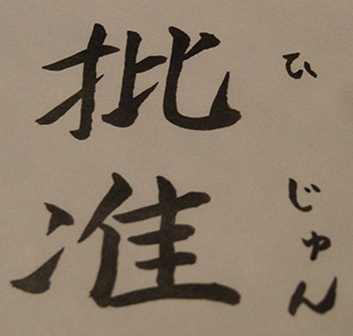 批准
ひじゅん